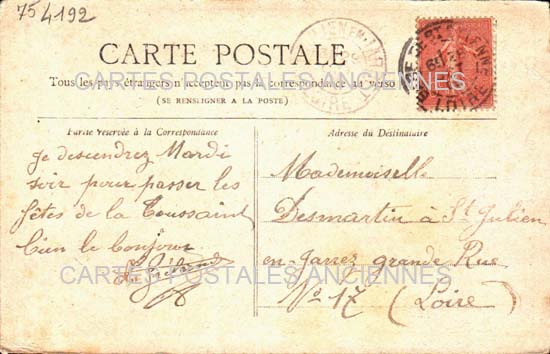 754192
CARTE POSTALE
Tous les pays étrangers n'acceptent pas la correspondance au verso
(SE RENSEIGNER A LA POSTE)
Partie réservée à la Correspondance
Je descendrez Mardi
soir pour passer les
fêtes de la Toussaint
bien le bonjour
Adresse du Destinataire
Mademoiselle
Desmartin à St Julien
en-Jarrez grande Rue
No 17 (Loire)
CARTES POSTALES ANCIENNES
CARTES POSTALES ANCIENNES
LOIRE
LOIRE